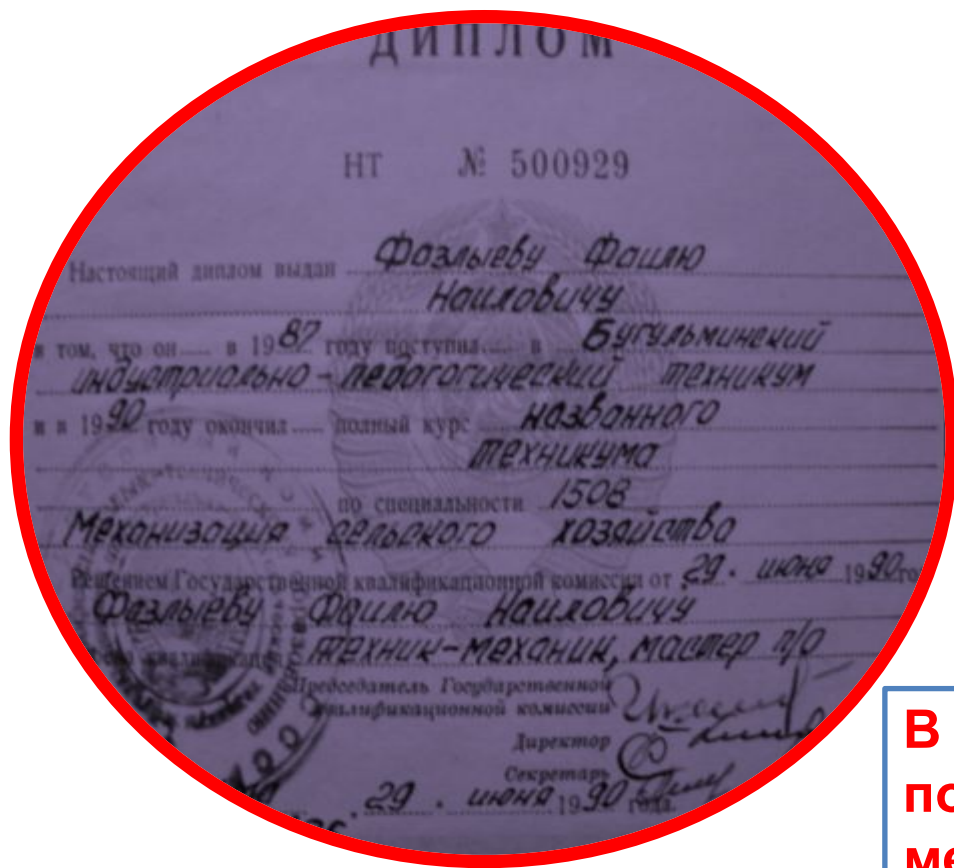 ДИПЛОМ
НТ № 500929
Настоящий диплом выдан Фазлыеву Фаилю
Наиловичу
в том, что он в 1987 году поступил в Бугульминский
индустриально-педагогический техникум
и в 1990 году окончил полный курс названного
техникума
по специальности 1508
Механизация сельского хозяйства
Решением Государственной квалификационной комиссии от 29. июня 1990 го
Фазлыеву Фаилю Наиловичу
квалификация техник-механик, мастер п/о
Председатель Государственной
квалификационной комиссии
Директор
Секретарь
29. июня 1990 года.
В
по
ме